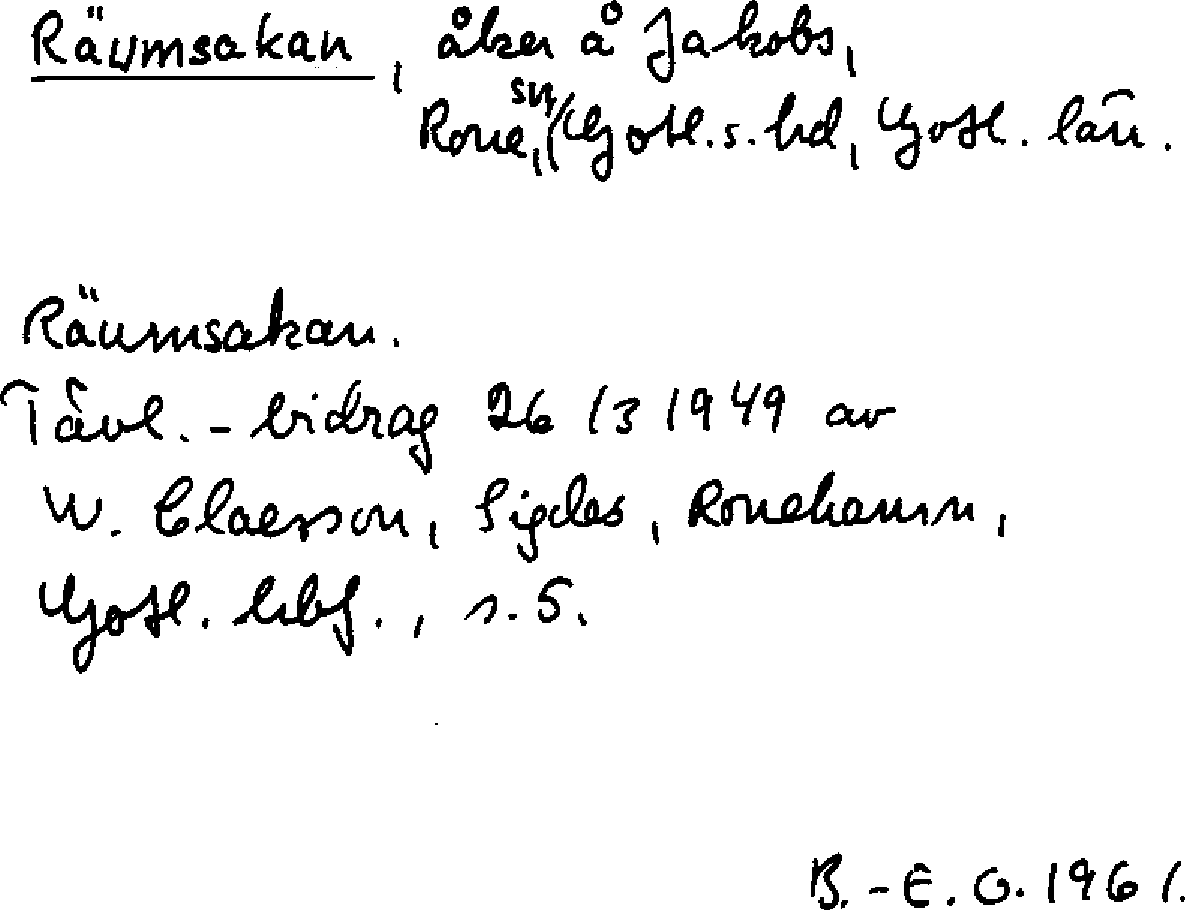 Räumsakan, åker å Jakobs,
Rone sn, Gotl. s. hd, Gotl. län.
Räumsakan.
Tävl.-bidrag 26/3 1949 av
W. Claesson, Sigdes, Ronehamn,
Gotl. hbf., s. 5.
B.-E. O. 1961.